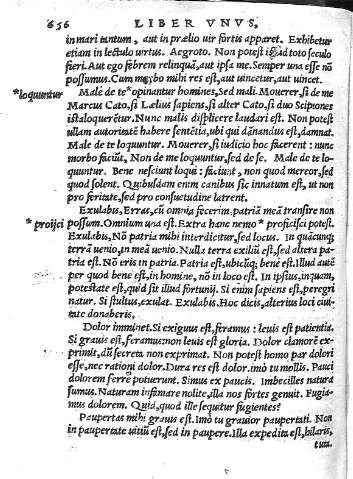 656 LIBER VNVS,
in mari tantum, aut in prælio uir fortis apparet. Exhibetur
etiam in lectulo uirtus. Aegroto. Non potest istud toto seculo
fieri. Aut ego febrem relinquã, aut ipsa me. Semper una esse nõ
possumus. Cum morbo mihi res est, aut uincetur, aut uincet.
*loquuntur Male de te *opinantur homines, sed mali. Mouerer, si de me
Marcus Cato, si Lælius sapiens, si alter Cato, si duo Scipiones
ista loquerẽtur. Nunc malis displicere laudari est. Non potest
ullam autoritatẽ habere sentẽtia, ubi qui dãnandus est, damnat.
Male de te loquuntur. Mouerer, si iudicio hoc facerent: nunc
morbo faciũt, Non de me loquuntur, sed de se. Male de te lo-
quuntur. Bene nesciunt loqui: faciunt, non quod mereor, sed
quod solent. Quibusdam enim canibus sic innatum est, ut non
pro feritate, sed pro consuetudine latrent.
Exulabis, Erras, cũ omnia fecerim. patriã meã transire non
*proijci possum. Omnium una est. Extra hanc nemo *proficisci potest.
Exulabis, Nõ patria mihi interdicitur, sed locus. In quãcunq;
terrã uenio, in meã uenio. Nulla terra exiliũ est, sed altera pa-
tria est. Nõ eris in patria. Patria est, ubicũq; bene est. Illud autẽ
per quod bene est, in homine, nõ in loco est. In ipsius, inquam,
potestate est, quid sit illiud fortunij. Si enim sapiens est, peregri
natur. Si stultus, exulat. Exulabis. Hoc dicis, alterius loci ciui-
tate donaberis.
Dolor imminet. Si exiguus est, feramus: leuis est patientia.
Si grauis est, feramus: non leuis est gloria. Dolor clamorẽ ex-
primit, dũ secreta non exprimat. Non potest homo par dolori
esse, nec rationi dolor. Dura res est dolor. imò tu mollis. Pauci
dolorem ferre potuerunt. Simus ex paucis. Imbecilles natura
sumus. Naturam infamare nolite, illa nos fortes genuit. Fugia-
mus dolorem. Quid, quod ille sequitur fugientes?
Paupertas mihi grauis est. Imò tu grauior paupertati. Non
in paupertate uitiũ est, sed in paupere. Illa expedita est, hilaris,
tuta.